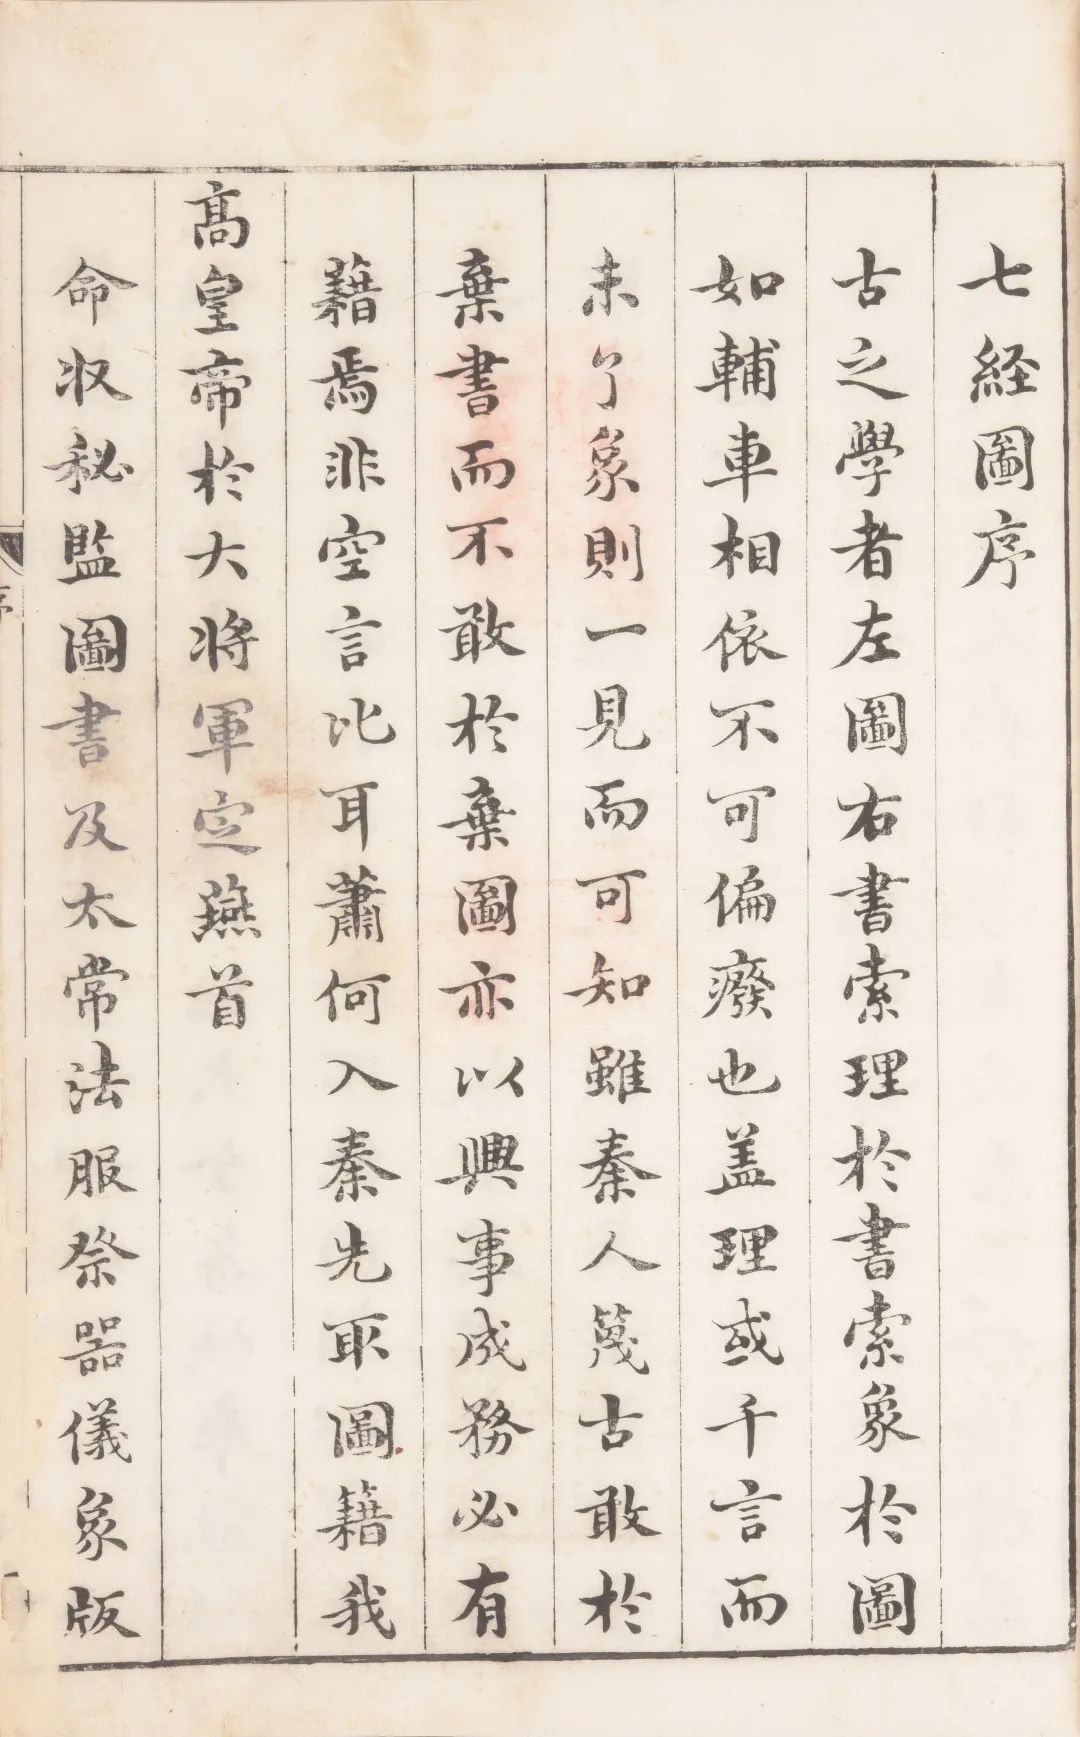 七経圖序
古之學者左圖右書索理於書索象於圖
如輔車相依不可偏癈也盖理或千言而
未了象則一見而可知雖秦人蔑古敢於
棄書而不敢於棄圖亦以興事成務必有
藉焉非空言比耳蕭何入秦先取圖籍我
髙皇帝於大將軍定燕首
命収秘監圖書及太常法服祭器儀象版
序